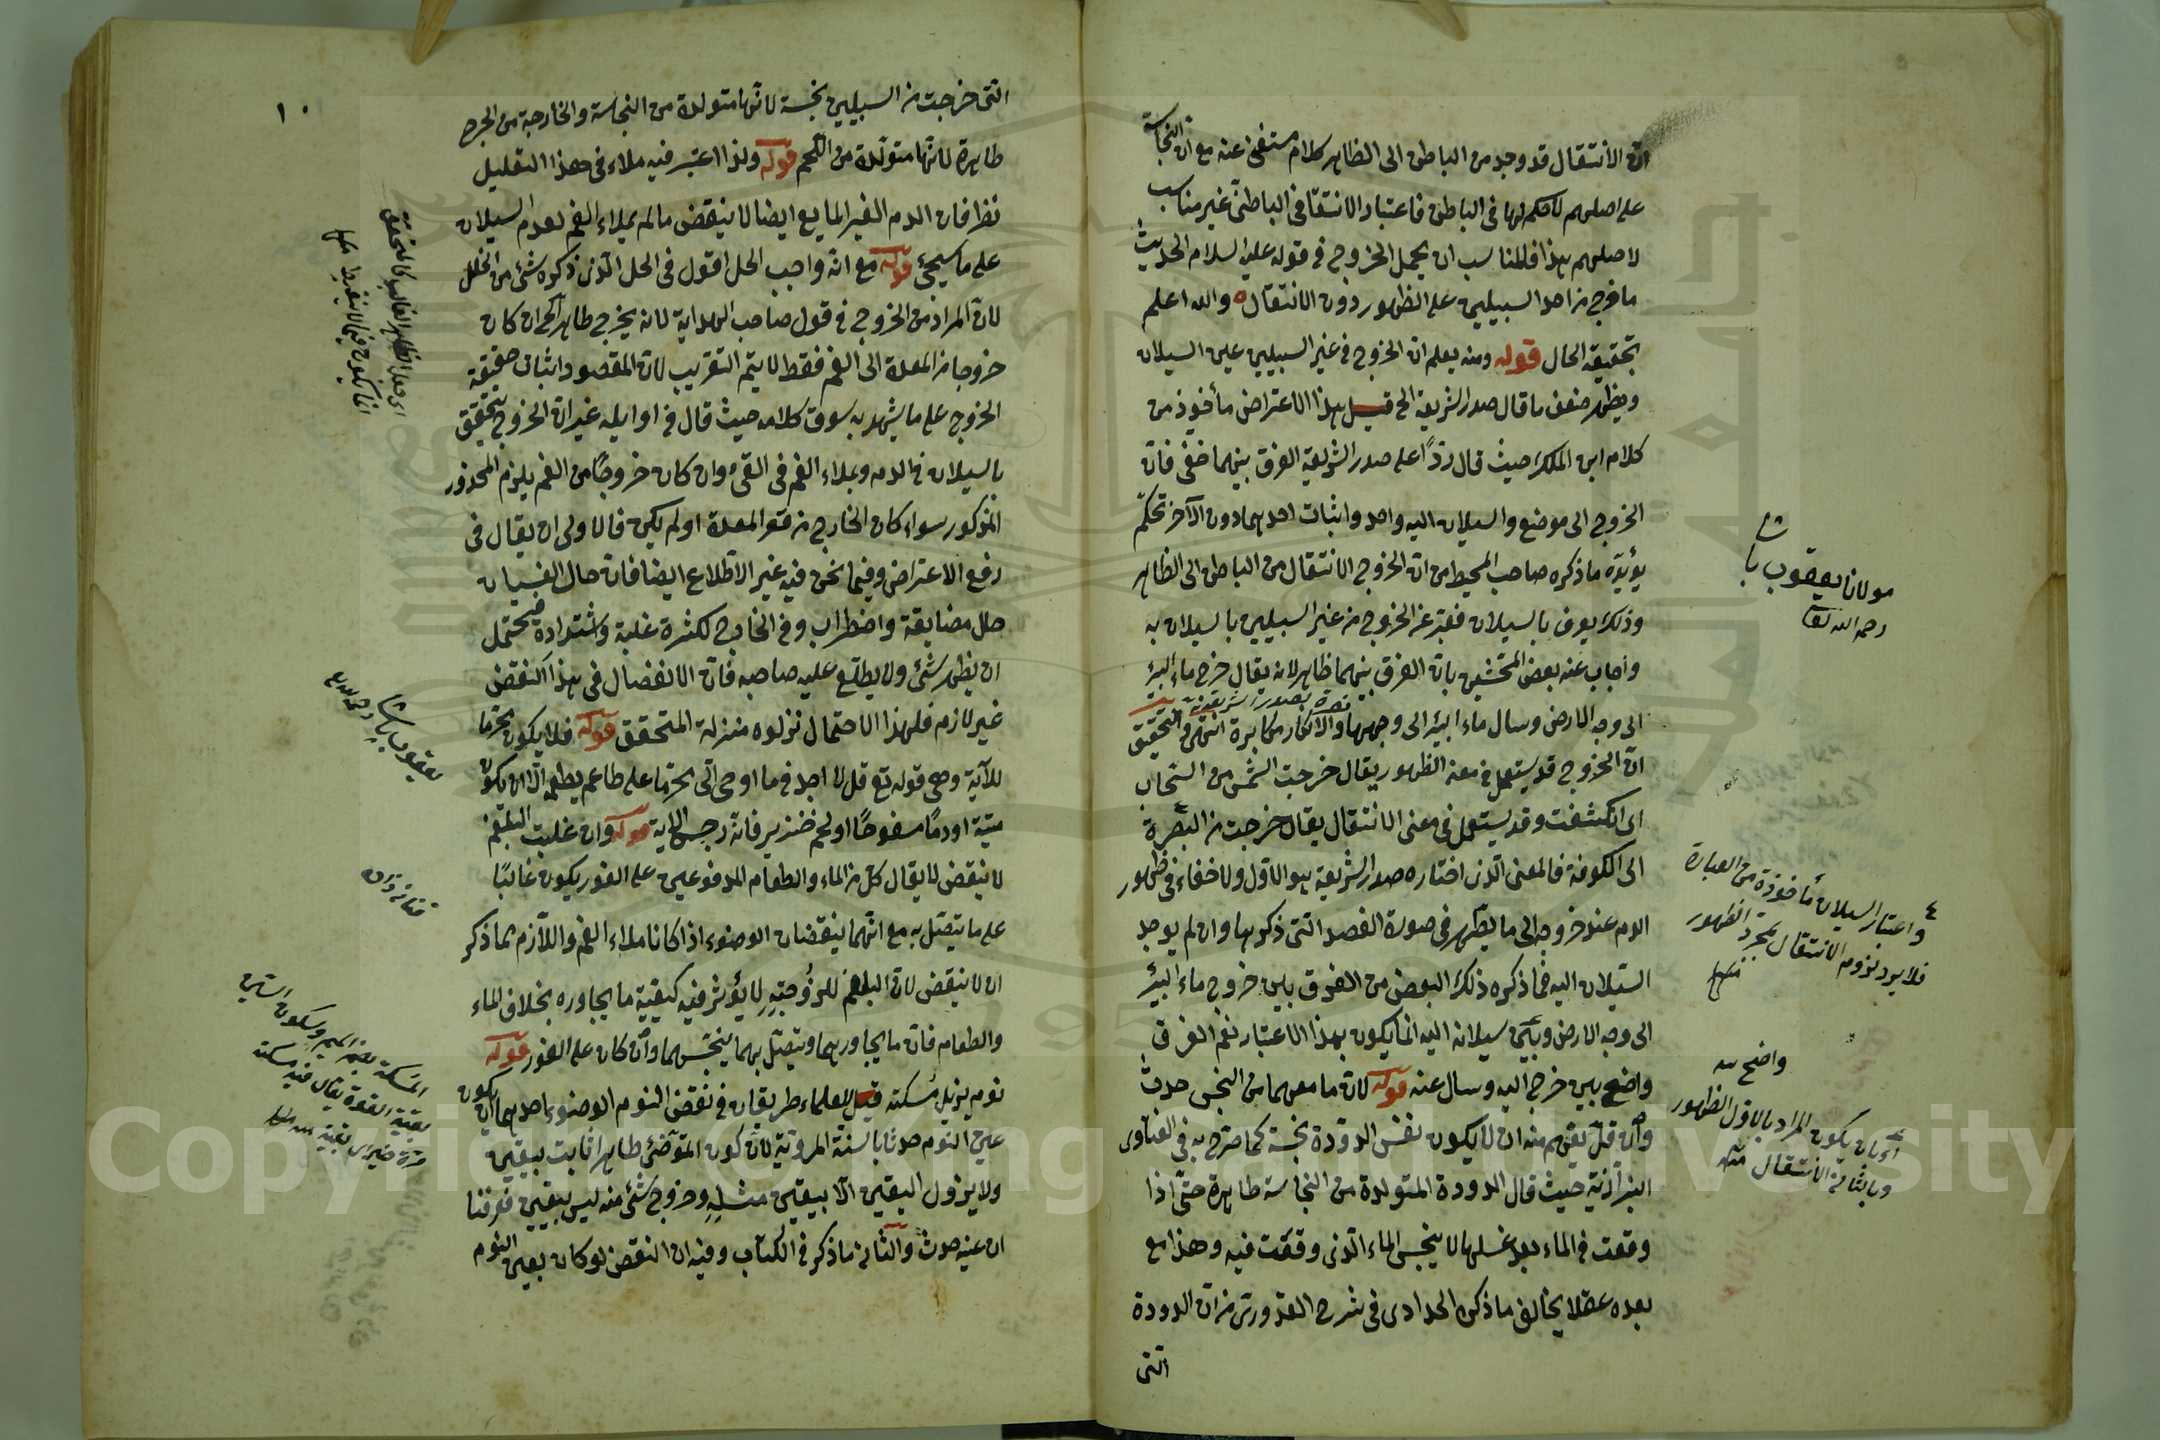 انّ الانتقال قد وجد من الباطن الى الظاهر كلام مستغنى عنه مع انّ النجاسة
على اصلهم لا حكم لها فى الباطن فاعتبار الانتقال فى الباطن غير مناسب
لاصلهم هذا فالمناسب ان يحمل الخروج فى قوله عليه السلام الحديث
ما خرج من احد السبيلين على الظهور دون الانتقال والله اعلم
بحقيقة الحال قوله ومنه يعلم ان الخروج فى غير السبيلين عين السيلان
ويظهر ضعف ما قال صدر الشريعة الخ قيل هذا الاعتراض مأخوذ من
كلام ابن الملك حيث قال ردًّا على صدر الشريعة الفرق بينهما خفى فانّ
الخروج الى موضع والسيلان اليه واحد واثبات احدهما دون الآخر تحكّم
يؤيّده ما ذكره صاحب المحيط من انّ الخروج الانتقال من الباطن الى الظاهر
وذلك يعرف بالسيلان فعبّر عن الخروج من غير السبيلين بالسيلان به
واجاب عنه بعض المحشّين بانّ الفرق بينهما ظاهر لانه يقال خرج ماء البئر
نصرة لصدر الشريعة
الى وجه الارض وسال ماء البئر الى وجهها والانكار مكابرة انتهى والتحقيق
انّ الخروج قد يستعمل فى معنى الظهور يقال خرجت الشمس من السحاب
اى انكشفت وقد يستعمل فى معنى الانتقال يقال خرجت من البصرة
الى الكوفة فالمعنى الّذى اختاره صدر الشريعة هو الاوّل ولا خفاء فى ظهور
الدم عند خروجه الى ما يطهر فى صورة الفصد التى ذكرها وان لم يوجد
السّيلان اليه فما ذكره ذلك البعض من الفرق بين خروج ماء البئر
الى وجه الارض وبين سيلانه اليه انما يكون بهذا الاعتبار نعم الفرق
واضح بين خرج اليه وسال عنه قوله لانّ ما معهما من النجس حدث
وان قلّ يفهم منه ان لا يكون نفس الدودة نجسة كما صرّح به فى الفتاوى
البزازيّة حيث قال الدودة المتولدة من النجاسة طاهرة حتّى اذا
وقعت فى الماء بعد غسلها لا ينجس الماء الّذى وقعت فيه وهذا مع
بعده عقلا يخالف ما ذكره الحدادى فى شرح القدورى من انّ الدودة
التى
مولانا يعقوب پاشا
رحمه الله تعالى
واعتبار السيلان مأخوذة من العبارة
فلا يرد لزوم الانتقال بمجرّد الظهور
منه
واضح
بان يكون المراد بالاول الظهور
وبالثانى الانتقال منه
١٠
التى خرجت من السبيلين نجسة لانّها متولدة من النجاسة والخارجة من الجرح
طاهرة لانّها متولّدة من اللحم قوله ولذا اعتبر فيه ملاء فى هذا التعليل
نظر فان الدم الغير المايع ايضا لا ينقض ما لم يملاء الفم لعدم السيلان
على ما سيجئ قوله مع انّه واجب الحل اقول فى الحل الّذى ذكره شئ من الخلل
لانّ المراد من الخروج فى قول صاحب الهداية لانه يخرج ظاهرا الخ ان كان
خروجا من المعدة الى الفم فقط لا يتم التقريب لانّ المقصود اثبات حقيقة
الخروج على ما يشهد به سوق كلامه حيث قال فى اوايله غير انّ الخروج يتحقق
بالسيلان فى الدم وبملاء الفم فى القئ وان كان خروجًا من الفم يلزم المحذور
المذكور سواء كان الخارج من قعر المعدة او لم يكن فالاولى ان يقال فى
دفع الاعتراض وفيما نحن فيه غير الاطّلاع ايضا فانّ حال الغثيان
حال مضايقة واضطراب وفى الخارج لكثرة غلبة واشتداده فيحتمل
ان يظهر شئ ولا يطّلع عليه صاحبه فانّ الانفصال فى هذا النقض
غير لازم فلهذا الاحتمال نزلوه منزلة المتحقق قوله فلا يكون محرّما
للآية وهى قوله تع قل لا اجد فيما اوحى الىّ محرّما على طاعم يطعمه الّا ان يكون
ميتة او دمًا مسفوحًا او لحم خنزير فانّه رجس الاية قوله وان غلبت البلغم
لا ينقض لا يقال كلّ من الماء والطعام المدفوعين على الفور يكون غالبًا
على ما يتصّل به مع انّهما ينقضان الوضوء اذا كانا ملاء الفم واللّازم بما ذكر
ان لا ينقض لانّ البلغم للزُوجتِهِ لا يؤثر فيه كيفيّة ما يجاوره بخلاف الماء
والطعام فانّ ما يجاورهما ويتصّل بهما ينجّسهما وان كان على الفور قوله
نوم يزيل مُسكته قيل للعلماء طريقان فى نقض النوم الوضوء احدهما ان يكون
عين النوم حدثا بالسّنة المرويّة لانّ كون المتوضّئ طاهرا ثابت بيقين
ولا يزول اليقين الّا بيقين مثلِهِ وخروج شئ منه ليس بيقين فعرفنا
ان عينه حدثٌ والثانى ما ذكر فى الكتاب وفيه ان النقض لو كان بعين النوم
يعقوب پاشا
المسكة بضم الميم وسكون السين
بقية القوة يقال فيه مسكة